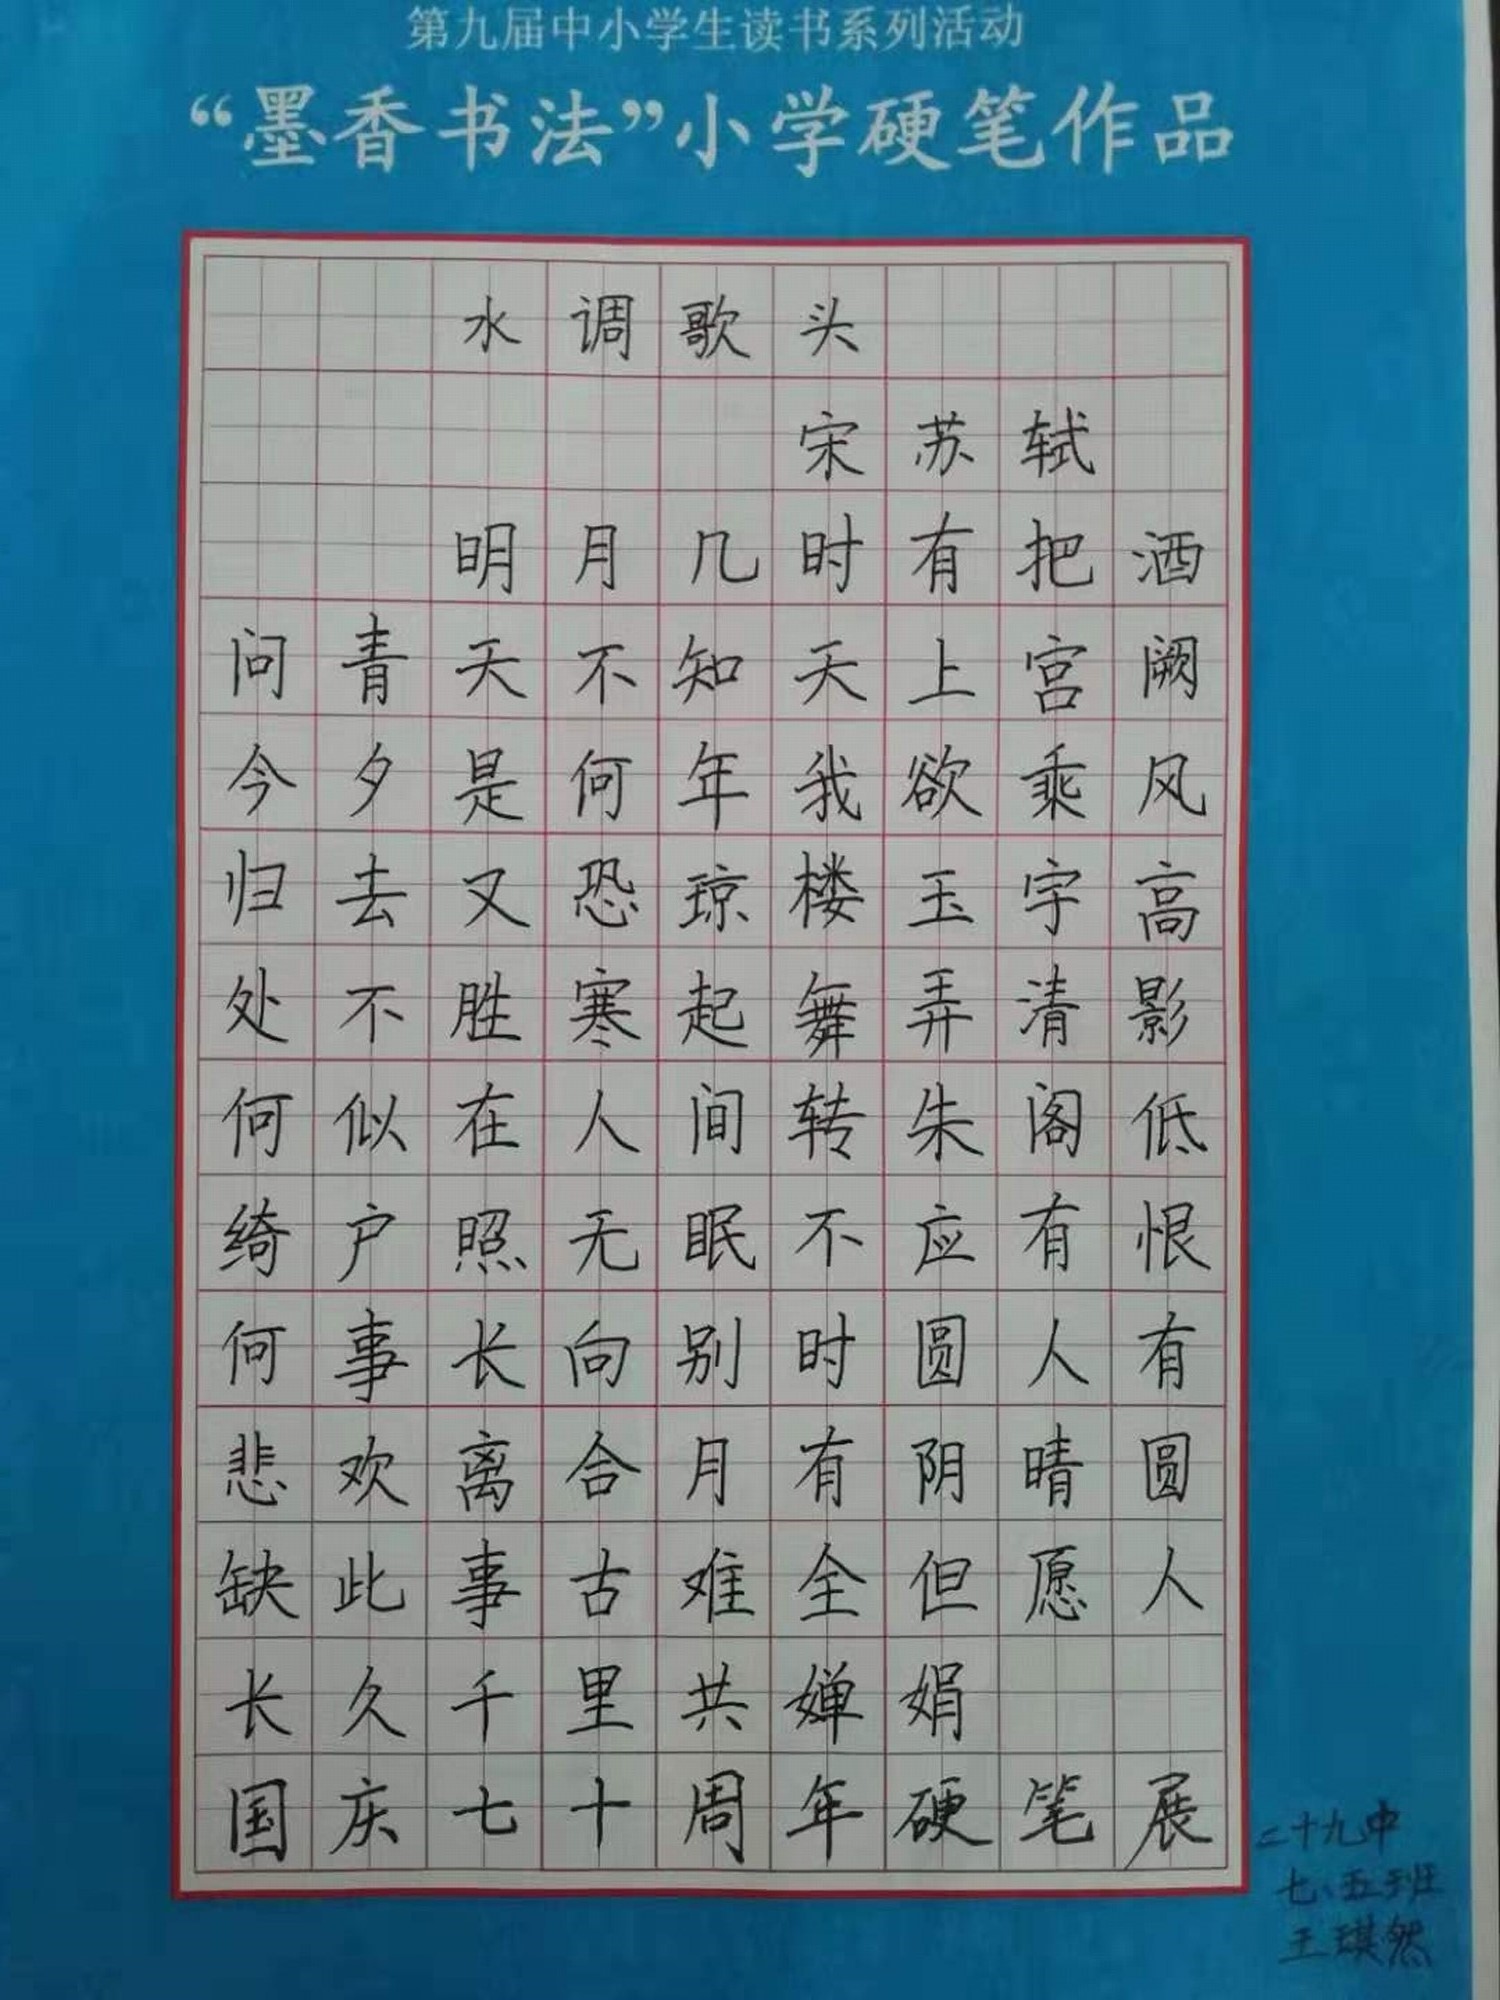 第九届中小学生读书系列活动
“墨香书法”小学硬笔作品
水调歌头
宋苏轼
明月几时有把酒
问青天不知天上宫阙
今夕是何年我欲乘风
归去又恐琼楼玉宇高
处不胜寒起舞弄清影
何似在人间转朱阁低
绮户照无眠不应有恨
何事长向别时圆人有
悲欢离合月有阴晴圆
缺此事古难全但愿人
长久千里共婵娟
国庆七十周年硬笔展
二十九中
七、五班
王琪然